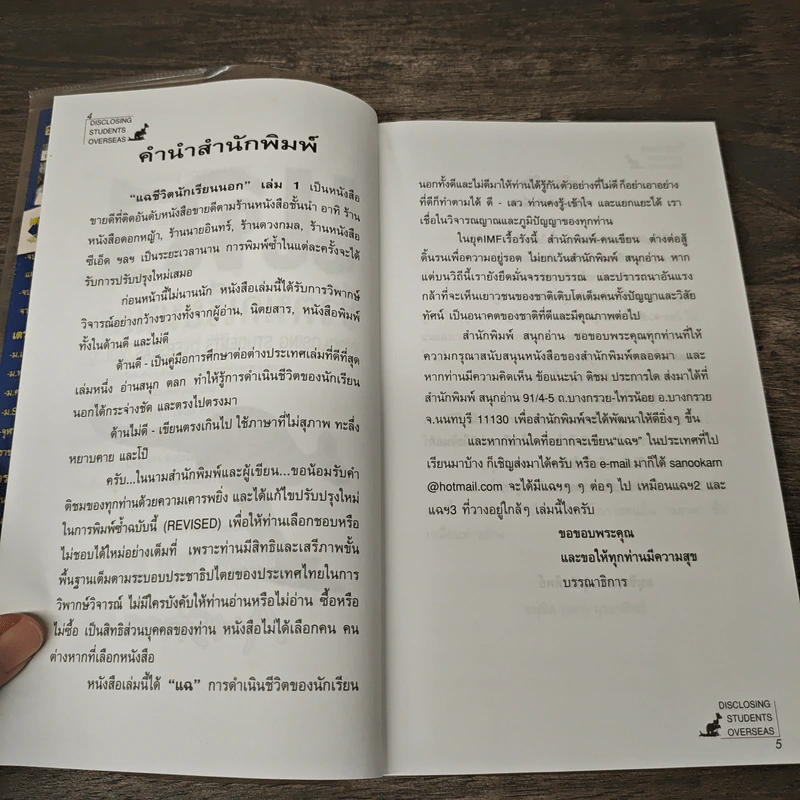 4
DISCLOSING
STUDENTS
OVERSEAS
คำนำสำนักพิมพ์
"แฉชีวิตนักเรียนนอก" เล่ม 1 เป็นหนังสือ
ขายดีที่ติดอันดับหนังสือขายดีตามร้านหนังสือชั้นนำ อาทิ ร้าน
หนังสือดอกหญ้า, ร้านนายอินทร์, ร้านดวงกมล, ร้านหนังสือ
ซีเอ็ด ฯลฯ เป็นระยะเวลานาน การพิมพ์ซ้ำในแต่ละครั้งจะได้
รับการปรับปรุงใหม่เสมอ
ก่อนหน้านี้ไม่นานนัก หนังสือเล่มนี้ได้รับการวิพากษ์
วิจารณ์อย่างกว้างขวางทั้งจากผู้อ่าน, นิตยสาร, หนังสือพิมพ์
ทั้งในด้านดี และไม่ดี
ด้านดี - เป็นคู่มือการศึกษาต่อต่างประเทศเล่มที่ดีที่สุด
เล่มหนึ่ง อ่านสนุก ตลก ทำให้รู้การดำเนินชีวิตของนักเรียน
นอกได้กระจ่างชัด และตรงไปตรงมา
ด้านไม่ดี - เขียนตรงเกินไป ใช้ภาษาที่ไม่สุภาพ ทะลึ่ง
หยาบคาย และโป๊
ครับ...ในนามสำนักพิมพ์และผู้เขียน...ขอน้อมรับคำ
ติชมของทุกท่านด้วยความเคารพยิ่ง และได้แก้ไขปรับปรุงใหม่
ในการพิมพ์ซ้ำฉบับนี้ (REVISED) เพื่อให้ท่านเลือกชอบหรือ
ไม่ชอบได้ใหม่อย่างเต็มที่ เพราะท่านมีสิทธิและเสรีภาพขั้น
พื้นฐานเต็มตามระบอบประชาธิปไตยของประเทศไทยในการ
วิพากษ์วิจารณ์ ไม่มีใครบังคับให้ท่านอ่านหรือไม่อ่าน ซื้อหรือ
ไม่ซื้อ เป็นสิทธิส่วนบุคคลของท่าน หนังสือไม่ได้เลือกคน คน
ต่างหากที่เลือกหนังสือ
หนังสือเล่มนี้ได้ "แฉ" การดำเนินชีวิตของนักเรียน
นอกทั้งดีและไม่ดีมาให้ท่านได้รู้กัน ตัวอย่างที่ไม่ดี ก็อย่าเอาอย่าง
ที่ดีก็ทำตามได้ ดี - เลว ท่านคงรู้-เข้าใจ และแยกแยะได้ เรา
เชื่อในวิจารณญาณและภูมิปัญญาของทุกท่าน
ในยุคIMFเรื้อรังนี้ สำนักพิมพ์-คนเขียน ต่างต่อสู้
ดิ้นรนเพื่อความอยู่รอด ไม่ยกเว้นสำนักพิมพ์ สนุกอ่าน หาก
แต่บนวิถีนี้เรายังยึดมั่นจรรยาบรรณ และปรารถนาอันแรง
กล้าที่จะเห็นเยาวชนของชาติเติบโตเต็มคนทั้งปัญญาและวิสัย
ทัศน์ เป็นอนาคตของชาติที่ดีและมีคุณภาพต่อไป
สำนักพิมพ์ สนุกอ่าน ขอขอบพระคุณทุกท่านที่ให้
ความกรุณาสนับสนุนหนังสือของสำนักพิมพ์ตลอดมา และ
หากท่านมีความคิดเห็น ข้อแนะนำ ติชม ประการใด ส่งมาได้ที่
สำนักพิมพ์ สนุกอ่าน 91/4-5 ถ.บางกรวย-ไทรน้อย อ.บางกรวย
จ.นนทบุรี 11130 เพื่อสำนักพิมพ์จะได้พัฒนาให้ดียิ่งๆ ขึ้น
และหากท่านใดที่อยากจะเขียน"แฉฯ" ในประเทศที่ไป
เรียนมาบ้าง ก็เชิญส่งมาได้ครับ หรือ e-mail มาก็ได้ sanookarn
@hotmail.com จะได้มีแฉฯๆ ๆ ต่อๆ ไป เหมือนแฉฯ2 และ
แฉฯ3 ที่วางอยู่ใกล้ๆ เล่มนี้ไงครับ
ขอขอบพระคุณ
และขอให้ทุกท่านมีความสุข
บรรณาธิการ
DISCLOSING
STUDENTS
OVERSEAS
5